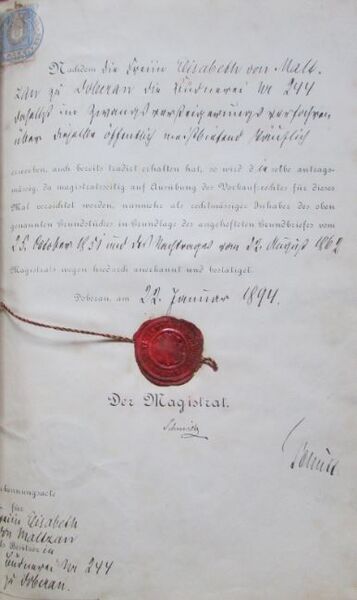 Nachdem die Freiin Elisabeth von Malt-
zan zu Doberan die Büdnerei Nr 244
daselbst im Zwangsversteigerungsverfahren
über dieselbe öffentlich meistbietend käuflich
erworben, auch bereits tradirt erhalten hat, so wird dieselbe antrags-
mässig, da magistratsseitig auf Ausübung des Vorkaufrechtes für dieses
Mal verzichtet worden, nunmehr als rechtmässiger Inhaber des oben
genannten Grundstückes in Grundlage des angehefteten Grundbriefes vom
25. October 1851 und des Nachtrages vom 22. August 1862
Magistrats wegen hiedurch anerkannt und bestätiget.
Doberan, am 22. Januar 1894.
Der Magistrat.
erkennungsacte
für
reiin Elisabeth
von Maltzan
als Besitzer in
Büdnerei Nr 244
zu Doberan.